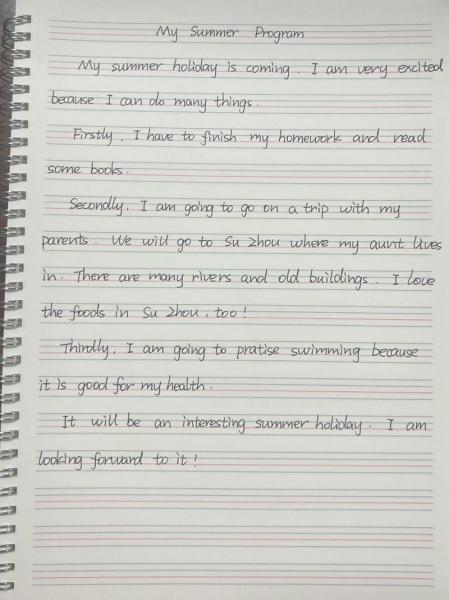 My Summer Program
My summer holiday is coming. I am very excited
because I can do many things.
Firstly, I have to finish my homework and read
some books.
Secondly, I am going to go on a trip with my
parents. We will go to Su Zhou where my aunt lives
in. There are many rivers and old buildings. I love
the foods in Su Zhou, too!
Thirdly, I am going to pratise swimming because
it is good for my health.
It will be an interesting summer holiday. I am
looking forward to it!